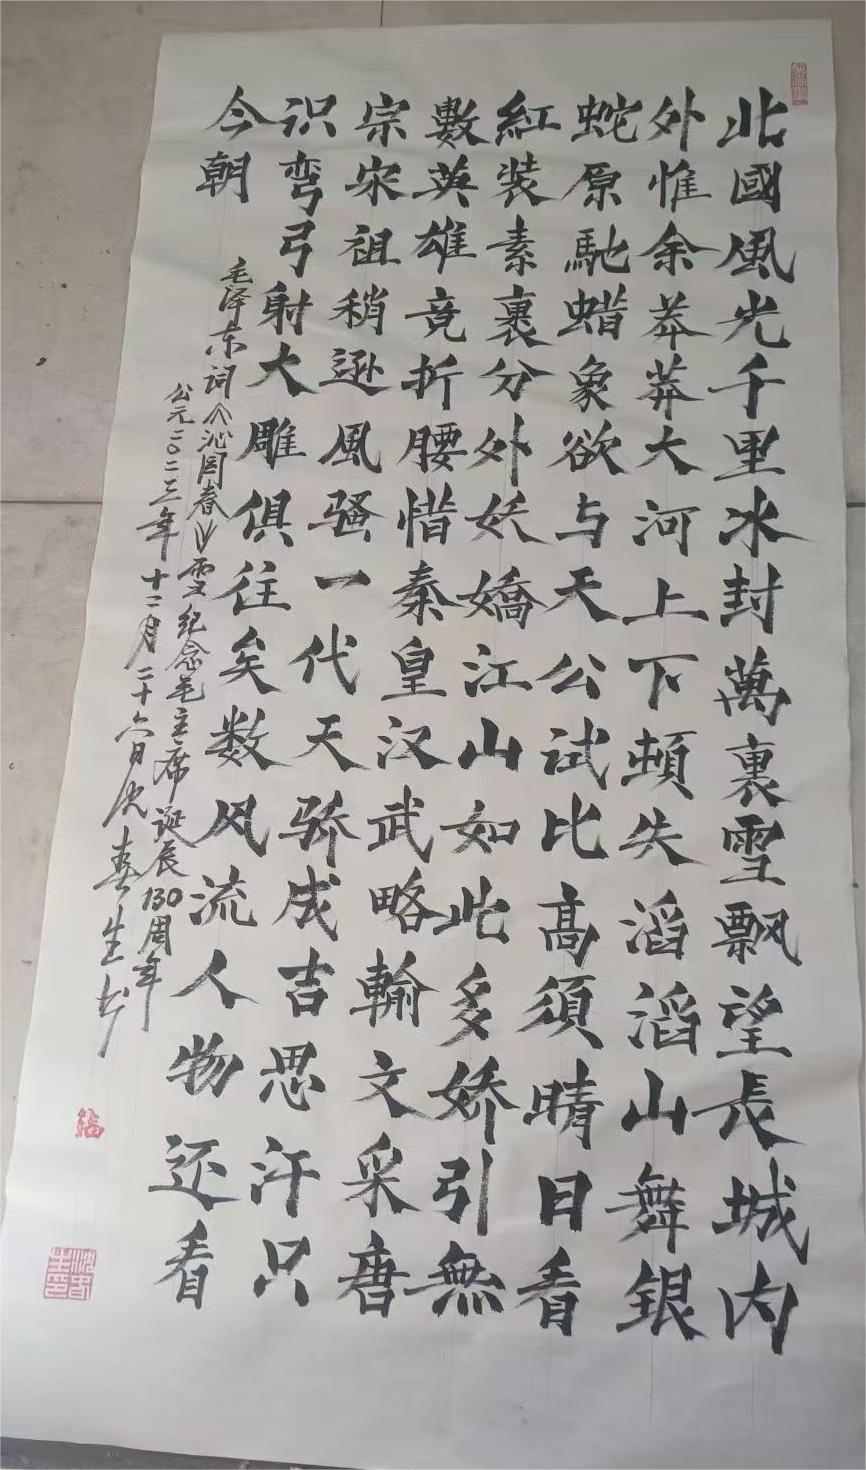 北國風光千里冰封萬裏雪飘望長城内
外惟余莽莽大河上下頓失滔滔山舞銀
蛇原馳蜡象欲与天公試比高須晴日看
紅装素裹分外妖嬌江山如此多娇引無
數英雄竞折腰惜秦皇汉武略輸文采唐
宗宋祖稍遜風骚一代天骄成吉思汗只
识弯弓射大雕俱往矣数风流人物还看
今朝
毛泽东词《沁园春》雪纪念毛主席诞辰130周年
公元二〇二三年十二月二十六日沈春生书
福